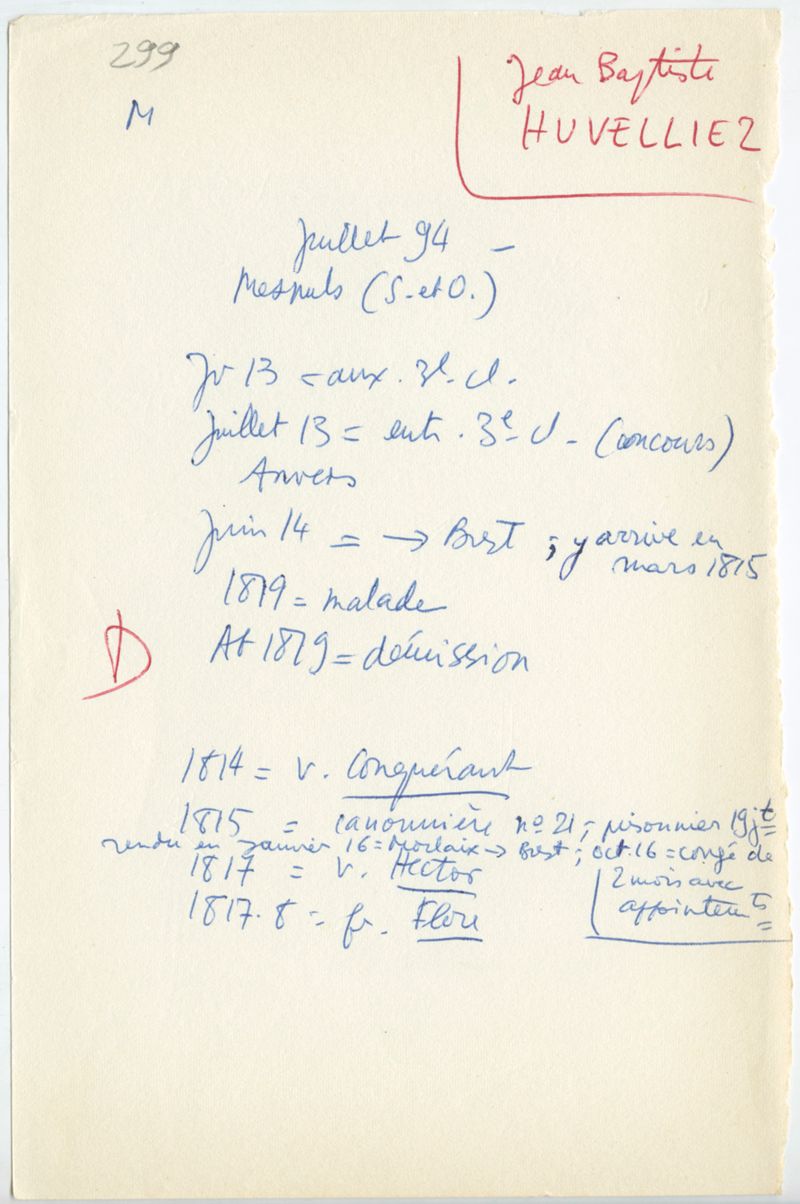 299
M
Jean Baptiste
HUVELLIEZ
Juillet 94 -
Mespuls (S. et O.)
Jv 13 = aux. 3e cl.
Juillet 13 = ent. 3e cl - (concours)
Anvers
Juin 14 = → Brest ; y arrive en
mars 1815
1819 = malade
At 1819 = démission
D
1814 = v. Conquérant
1815 = canonnière no 21 ; prisonnier 19 jt
rendu en Janvier 16 = Morlaix → Brest ; oct. 16 = congé de
2 mois avec
appointemts
1817 = v. Hector
1817.8 = fr. Flore